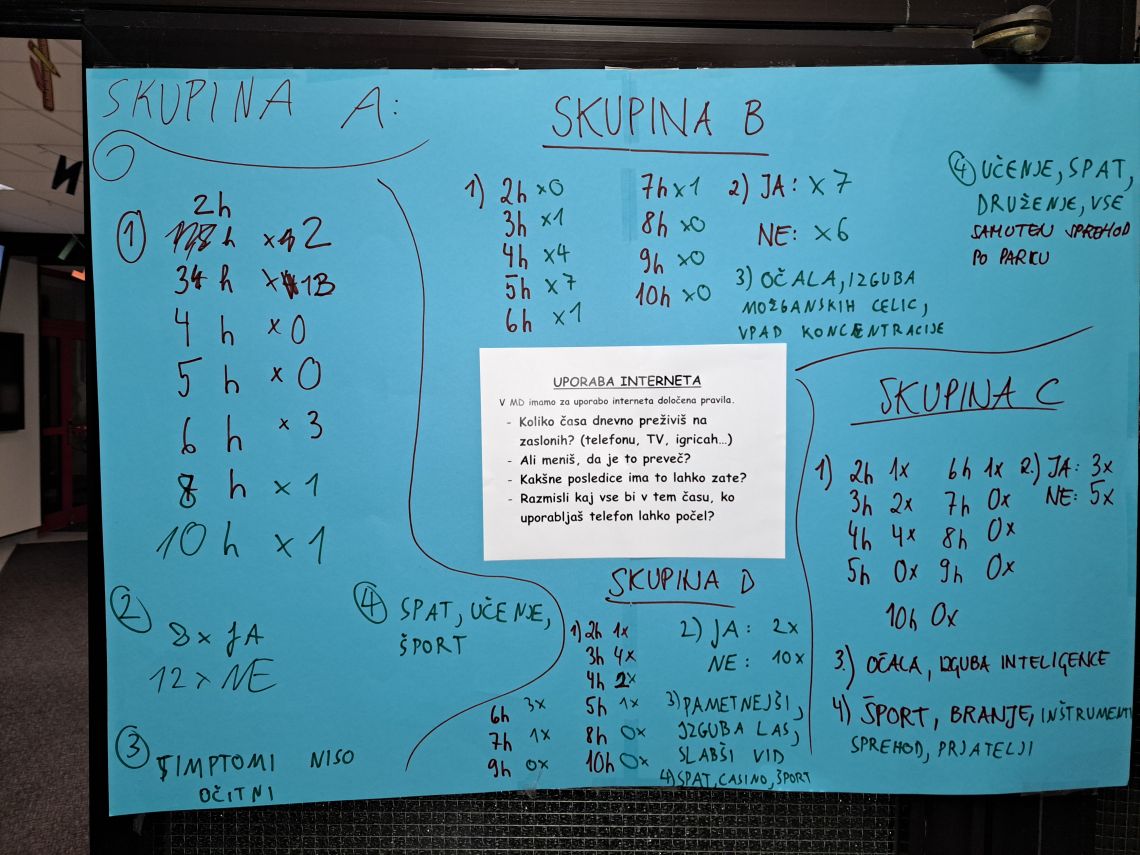 SKUPINA A:
1
2h
h x 2
3 h x 13
4 h x 0
5 h x 0
6 h x 3
8 h x 1
10 h x 1
2
8x JA
12x NE
3
SIMPTOMI NISO
OČITNI
4 SPAT, UČENJE,
ŠPORT
SKUPINA B
1) 2h x0
3h x1
4h x4
5h x7
6h x1
7h x1
8h x0
9h x0
10h x0
2) JA: x7
NE: x6
3) OČALA, IZGUBA
MOŽGANSKIH CELIC,
VPAD KONCENTRACIJE
4 UČENJE, SPAT,
DRUŽENJE, VSE
SAMOTEN SPREHOD
PO PARKU
UPORABA INTERNETA
V MD imamo za uporabo interneta določena pravila.
- Koliko časa dnevno preživiš na
zaslonih? (telefonu, TV, igricah...)
- Ali meniš, da je to preveč?
- Kakšne posledice ima to lahko zate?
- Razmisli kaj vse bi v tem času, ko
uporabljaš telefon lahko počel?
SKUPINA C
1) 2h 1x
3h 2x
4h 4x
5h 0x
6h 1x
7h 0x
8h 0x
9h 0x
10h 0x
2.) JA: 3x
NE: 5x
3.) OČALA, IZGUBA INTELIGENCE
4) ŠPORT, BRANJE, INŠTRUMENTI
SPREHOD, PRJATELJI
SKUPINA D
1) 2h 1x
3h 4x
4h 2x
5h 1x
6h 3x
7h 1x
8h 0x
9h 0x
10h 0x
2) JA: 2x
NE: 10x
3) PAMETNEJŠI,
IZGUBA LAS,
SLABŠI VID
4) SPAT, CASINO, ŠPORT